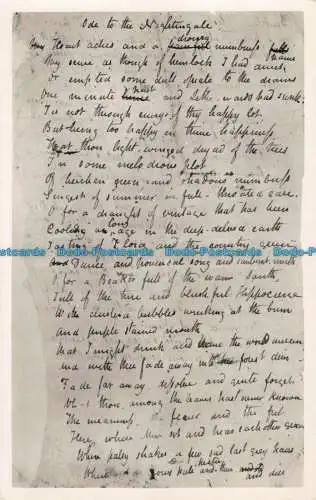 Ode to the Nightingale
drowsy
My Heart aches and a painful numbness falls
pains
My sense as though of hemlock I had drunk
Or emptied some dull opiate to the drains
past
One minute hence and Lethe-wards had sunk.
Tis not through envy of thy happy lot,
But being too happy in thine happiness
That thou light-winged dryad of the trees
In some melodious plot
Of beechen green and shadows numberless
Singest of summer in full-throated ease.
O for a draught of vintage that has been
Cooling an age in the deep-delved earth
Tasting of Flora and the country green
And Dance and provencal song and sunburnt mirth
O for a Beaker full of the warm South,
Full of the true and blushful Hippocrene
With cluster'd bubbles winking at the brim
And purple stained mouth
That I might drink and leave the world unseen
And with thee fade away into the forest dim
Fade far away dissolve and quite forget
What thou among the leaves hast never known
The weariness, the fever and the fret
Here, where men sit and hear each other groan
Where palsy shakes a few sad last grey hairs
Where youth grows pale and thin and
and dies
Dodo-Postcards Dodo-Postcards Dodo-Postcards
Dodo-Postcards Dodo-Postcards Dodo-Postcards